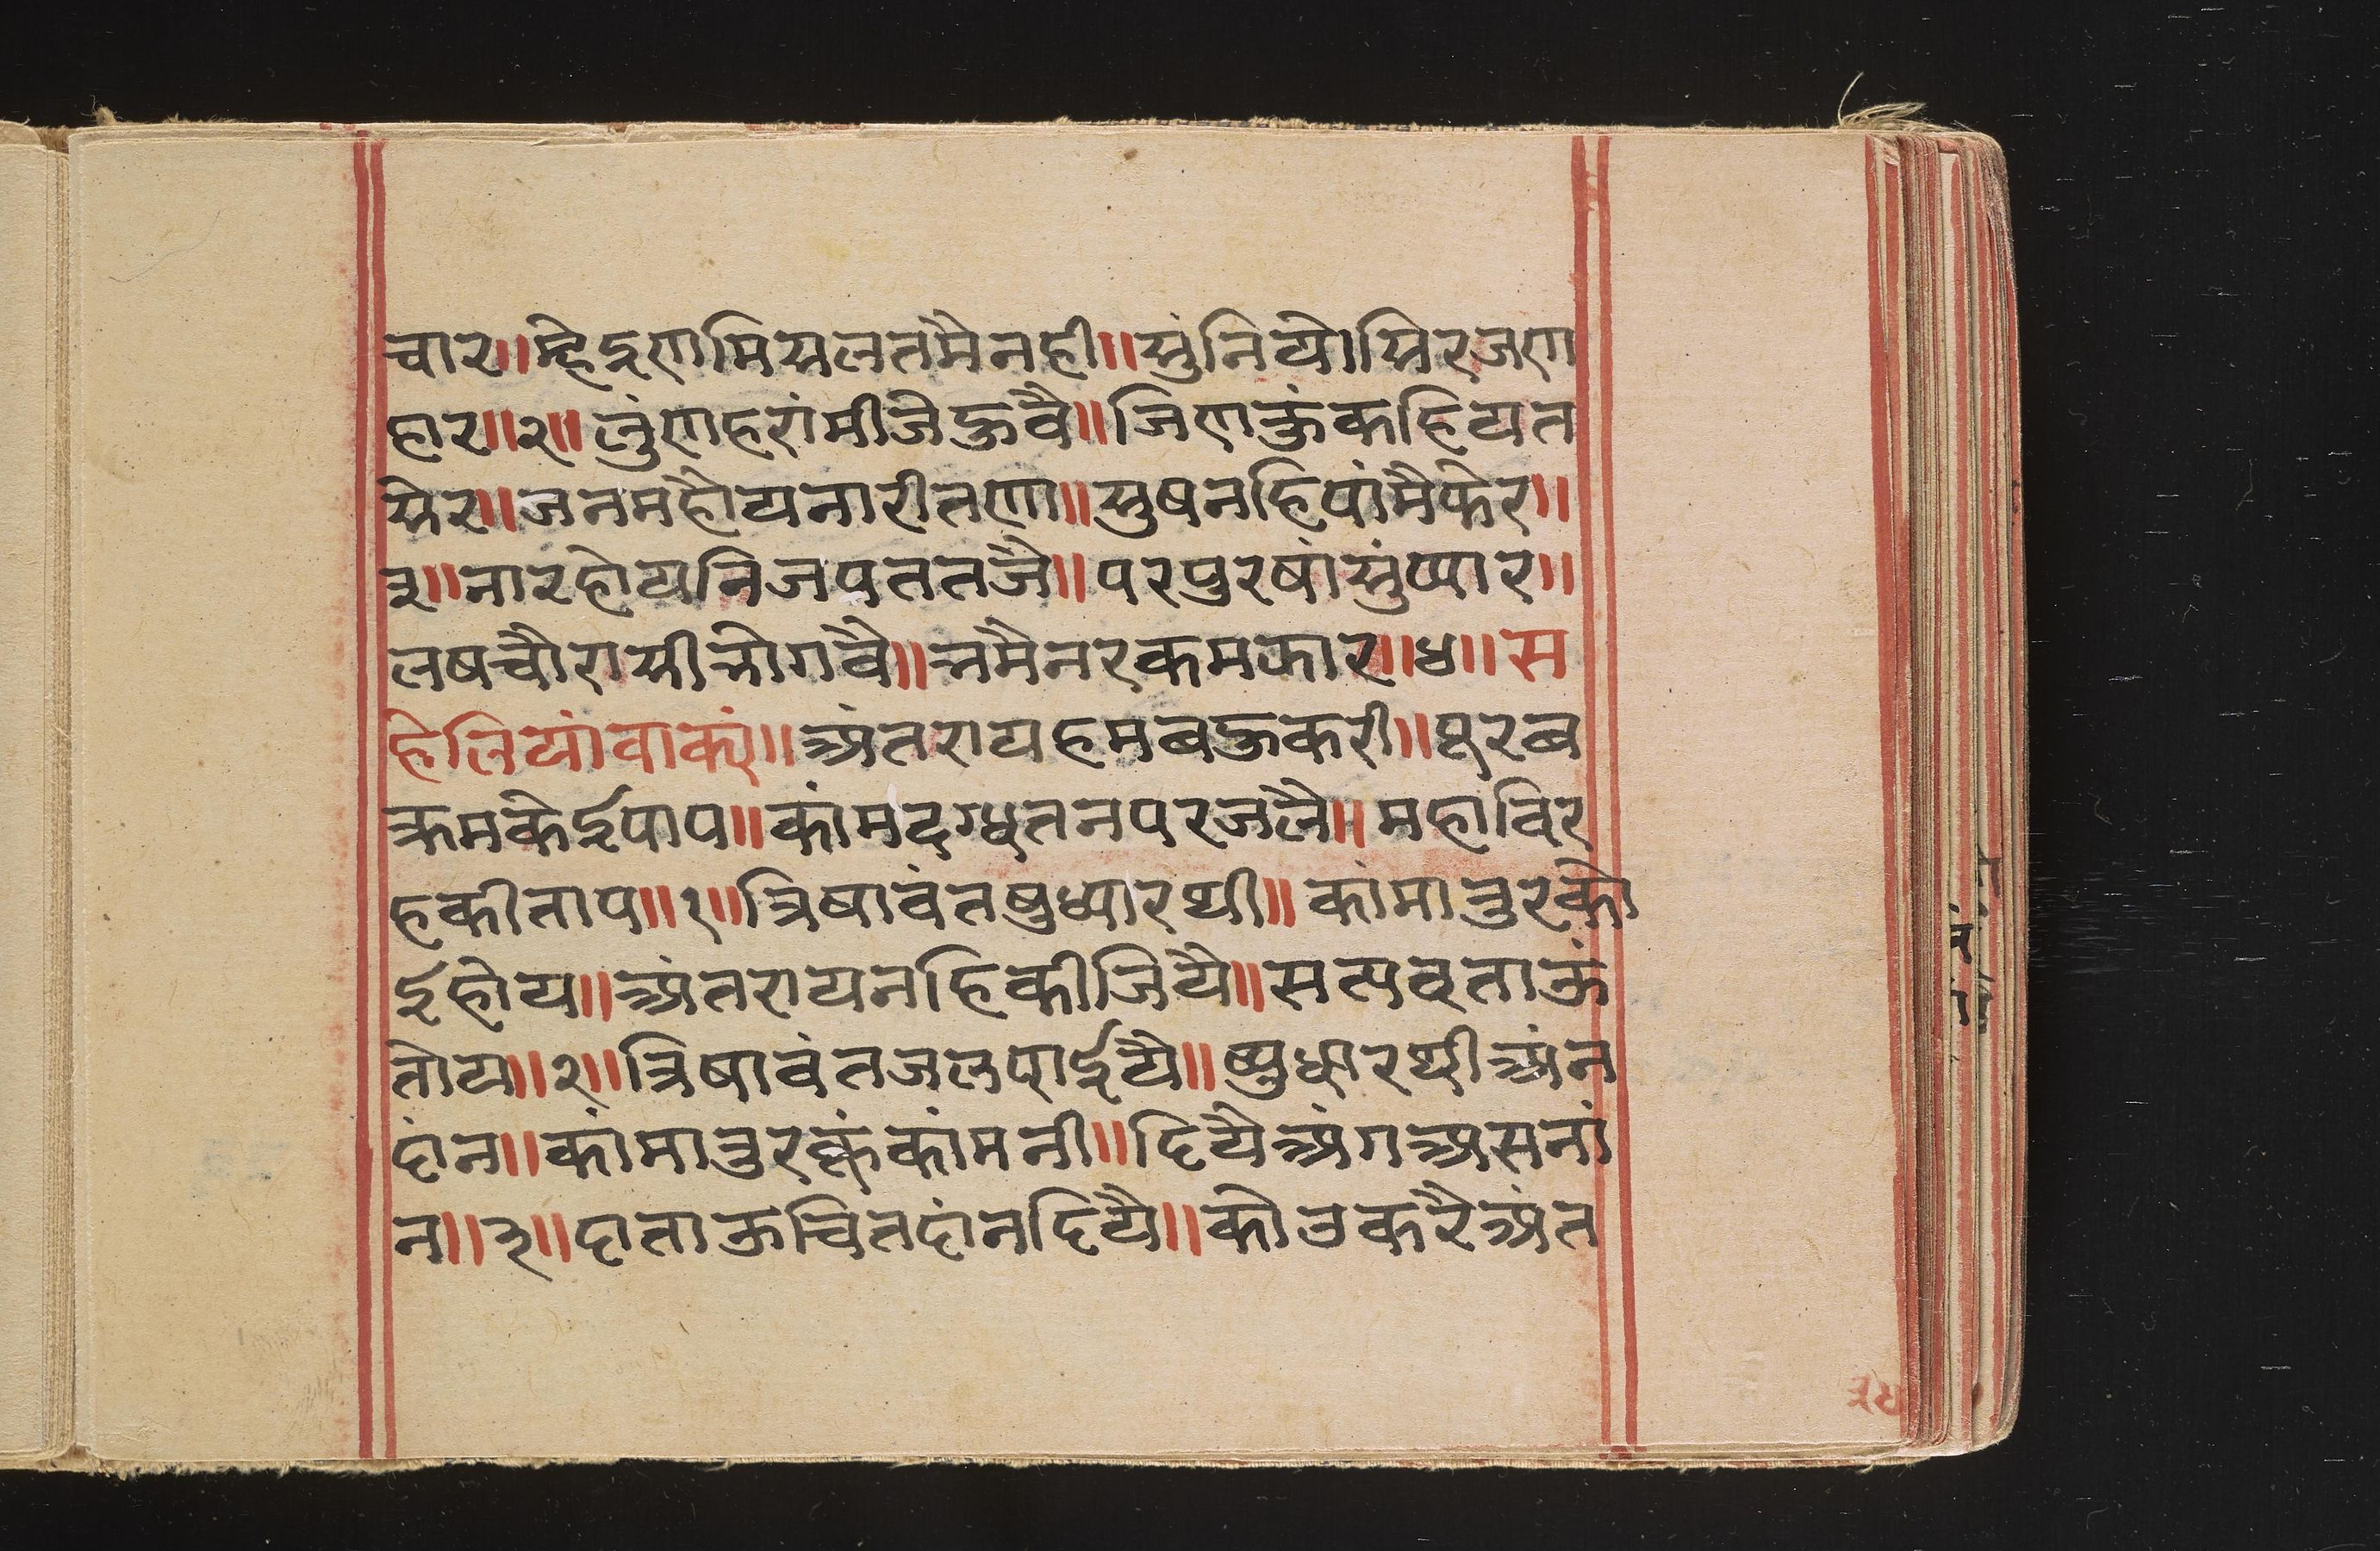 चार॥म्हेइणमिसलतमैनही॥सुंनियो।सिरजण
हार॥२॥लुंणहरांमीजेहुवै॥जिणकुंकहियत
सेर॥जनमहौयनारीतणा॥सुषनहिपांमैफेर॥
३॥नारहोयनिजपततजै॥परपुरषांसुंप्यार॥
लषचौरासीभोगवै॥भ्रमैनरकमझार॥४॥स
हेलियांवाक्यं॥अंतरायहमबहुकरी॥पूरब
क्रमकेईपाप॥कांमदग्धतनपरजलै॥महाविर
हकीताप॥१॥त्रिषावंतषुध्यारथी॥कांमातुरको
ईहोय॥अंतरायनहिकीजियै॥सतपबताऊं
तोय॥२॥त्रिषावंतजलपाईयै॥ष्युध्यारथीअंन
दांन॥कांमातुरकुंकांमनी॥दियैअंगअसनां
न॥३॥दाताऊचितदांनदियै॥कोउकरैअंत